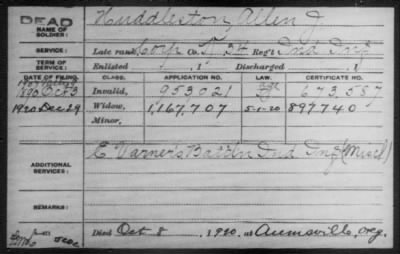 DEAD
NAME OF SOLDIER: Huddleston, Allen J.
SERVICE: Late rank, Corp Co. 24 Reg't Ind Inf
TERM OF SERVICE: Enlisted , 1 Discharged , 1
DATE OF FILING. CLASS. APPLICATION NO. LAW. CERTIFICATE NO.
1890 Oct 3 Invalid, 953021 673587
1920 Dec 29 Widow, 1,167,707 5-1-20 897740
Minor,
ADDITIONAL SERVICES: E Varner's Batt'ln Ind Inf (Miscl)
REMARKS:
Died Oct 8, 1920, at Aumsville, Oreg.